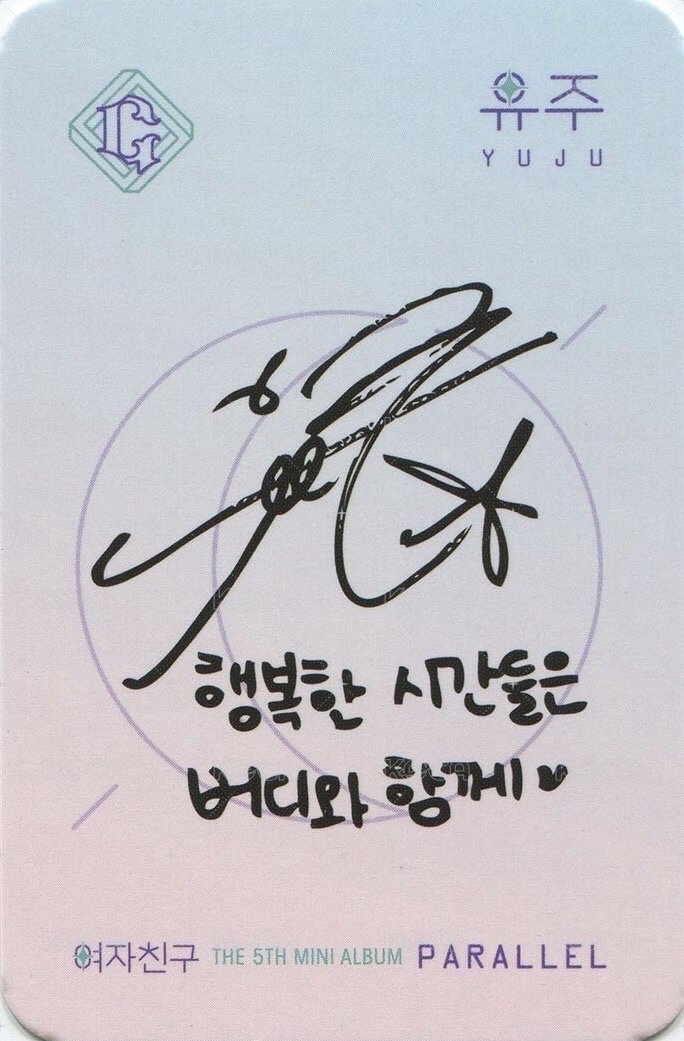 G
유주
YUJU
행복한 시간들은
버디와 함께♥
여자친구 THE 5TH MINI ALBUM PARALLEL